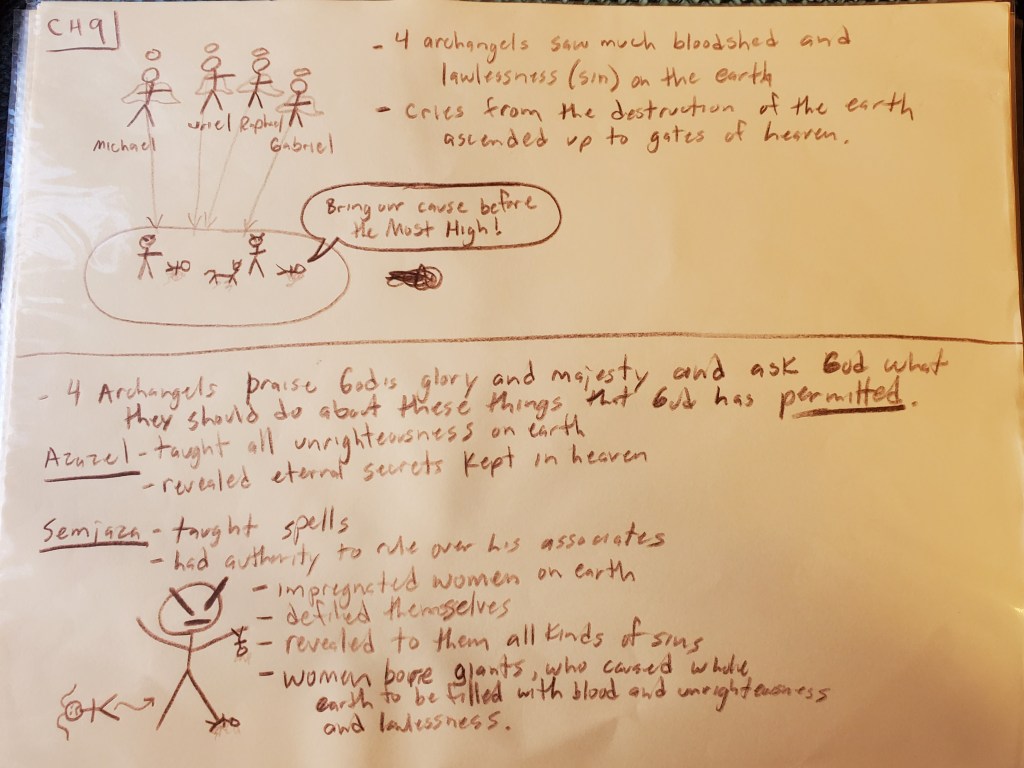 CH9
- 4 archangels saw much bloodshed and
lawlessness (sin) on the earth
- Cries from the destruction of the earth
ascended up to gates of heaven.
Michael
Uriel
Raphael
Gabriel
Bring our cause before
the Most High!
- 4 Archangels praise God's glory and majesty and ask God what
they should do about these things that God has permitted.
Azazel - taught all unrighteousness on earth
- revealed eternal secrets kept in heaven
Semjaza - taught spells
- had authority to rule over his associates
- impregnated women on earth
- defiled themselves
- revealed to them all kinds of sins
- women bore giants, who caused whole
earth to be filled with blood and unrighteousness
and lawlessness.